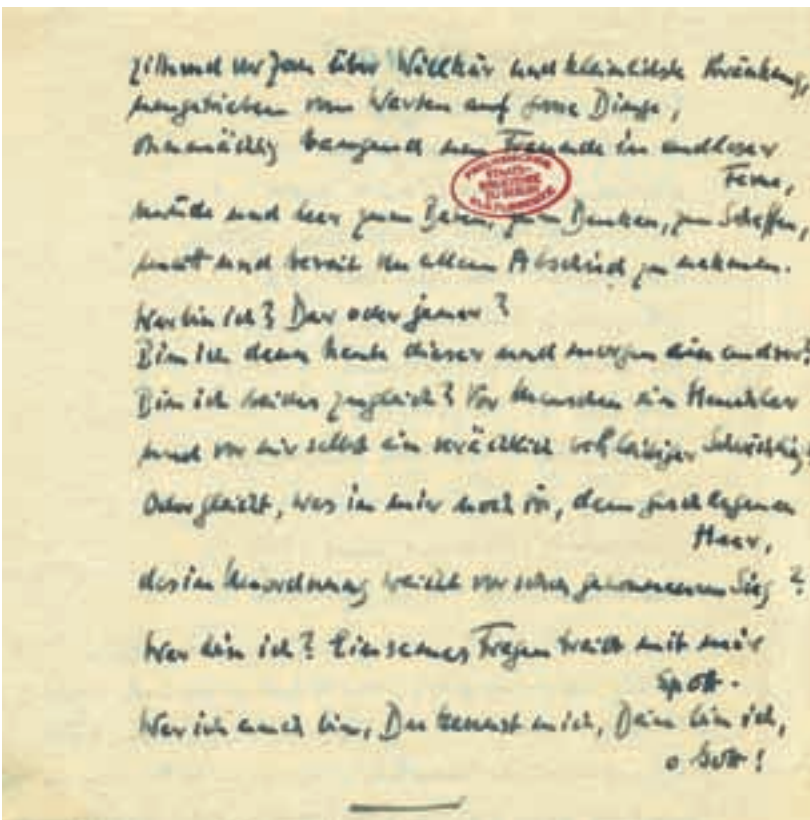 zitternd vor Zorn über Willkür und kleinlichste Kränkung,
umgetrieben vom Warten auf große Dinge,
ohnmächtig bangend um Freunde in endloser
Ferne,
STAATS-
BIBLIOTHEK
ZU BERLIN
müde und leer zum Beten, zum Denken, zum Schaffen,
matt und bereit von allem Abschied zu nehmen.
Wer bin ich? Der oder jener?
Bin ich denn heute dieser und morgen ein andrer?
Bin ich beides zugleich? Vor Menschen ein Heuchler
und vor mir selbst ein verächtlich wehleidiger Schwächling?
Oder gleicht, was in mir noch ist, dem geschlagenen
Heer,
das in Unordnung weicht vor schon gewonnenem Sieg?
Wer bin ich? Einsames Fragen treibt mit mir
Spott.
Wer ich auch bin, Du kennst mich, Dein bin ich,
o Gott!